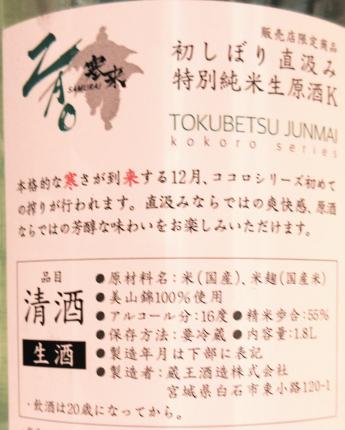 販売店限定商品
寒来
SAMURAI
初しぼり 直汲み
特別純米生原酒K
TOKUBETSU JUNMAI
kokoro series
本格的な寒さが到来する12月、ココロシリーズ初めて
の搾りが行われます。直汲みならではの爽快感、原酒
ならではの芳醇な味わいをお楽しみいただけます。
品目
清酒
生酒
●原材料名：米（国産）、米麹（国産米）
●美山錦100%使用
●アルコール分：16度 ●精米歩合：55%
●保存方法：要冷蔵 ●内容量：1.8L
●製造年月は下部に表記
●製造者：蔵王酒造株式会社
宮城県白石市東小路120-1
・飲酒は20歳になってから。